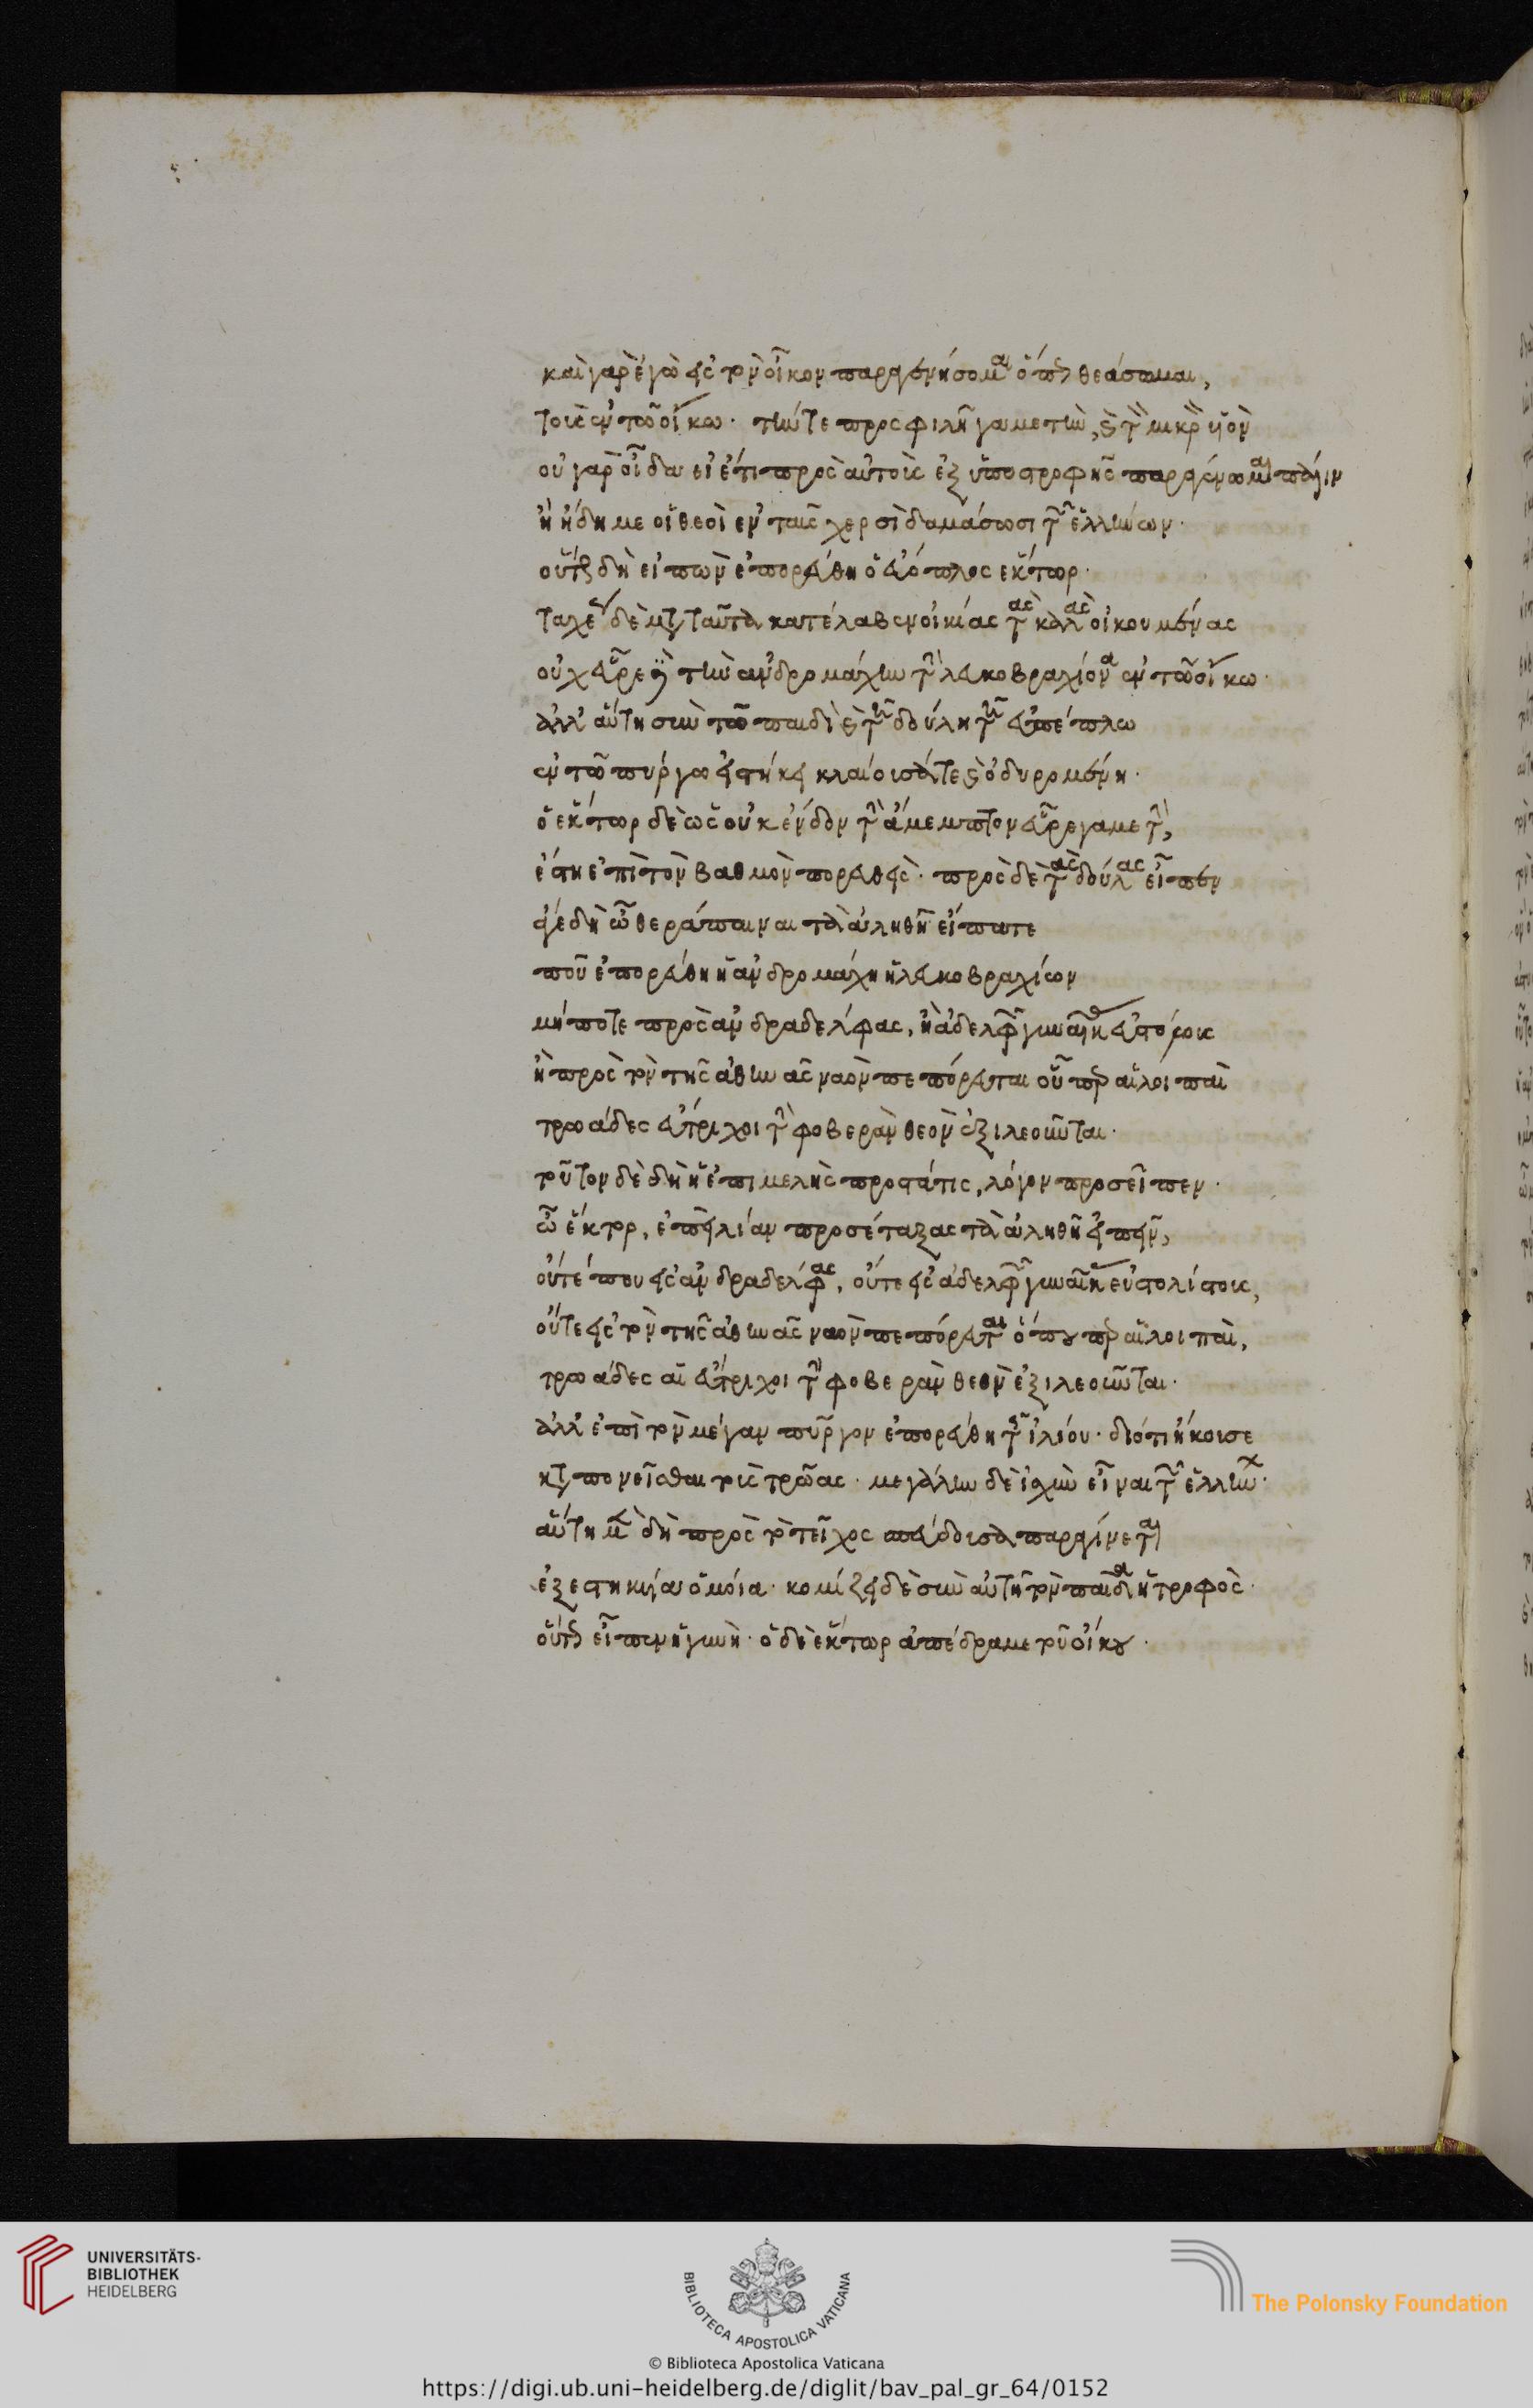 καὶ γὰρ ἐγὼ εἰς τὸν οἶκον παραγενήσομαι ὅπως θεάσωμαι,
τοὺς ἐν τῶ οἴκω· τήν τε προσφιλῆ γαμετὴν, καὶ τὸν μικρὸν υἱόν
οὐ γὰρ οἶδα εἰ ἔτι πρὸς αὐτοὺς ἐξ ὑποστροφῆς παραγένωμαι πάλιν
ἢ ἤδη με οἱ θεοὶ ἐν ταῖς χερσὶ δαμάσωσι τῶν ἑλλήνων·
οὕτως δὴ εἰπὼν ἐπορεύθη ὁ εὔοπλος ἕκτωρ·
ταχέως δὲ μετὰ ταῦτα κατέλαβεν οἰκίας τὰς καλὰς οἰκουμένας
οὐχ εὗρε δὲ τὴν ἀνδρομάχην τὴν λευκοβραχίονα ἐν τῶ οἴκω·
ἀλλ' αὕτη σὺν τῶ παιδὶ καὶ τῆ δούλη τῆ εὐπέπλω
ἐν τῶ πύργω εἱστήκει κλαίουσά τε καὶ ὀδυρομένη·
ὁ ἕκτωρ δὲ ὡς οὐκ ἔνδον τὴν ἄμεμπτον εὗρε γαμετὴν,
ἔστη ἐπὶ τὸν βαθμὸν πορευθείς· πρὸς δὲ τὰς δούλας εἶπεν
ἄγε δὴ ὦ θεράπαιναι τὰ ἀληθῆ εἴπατε
ποῦ ἐπορεύθη ἡ ἀνδρομάχη ἡ λευκοβραχίων
μήποτε πρὸς ἀνδραδέλφας, ἢ ἀδελφῶν γυναῖκας εὐπέπλους
ἢ πρὸς τὸν τῆς ἀθηνᾶς ναὸν πεπόρευται οὗπερ αἱ λοιπαὶ
τρωάδες εὔτριχοι τὴν φοβερὰν θεὸν ἐξιλεοῦνται·
τοῦτον δὲ δὴ ἡ ἐπιμελὴς προστάτις, λόγον προσεῖπεν·
ὦ ἕκτορ, ἐπεὶ λίαν προσέταξας τὰ ἀληθῆ εἰπεῖν,
οὔτέ που εἰς ἀνδραδέλφας, οὔτε εἰς ἀδελφῶν γυναῖκας εὐστολίστους,
οὔτε εἰς τὸν τῆς ἀθηνᾶς ναὸν πεπόρευται ὅπου περ αἱ λοιπαὶ,
τρωάδες αἱ εὔτριχοι τὴν φοβερὰν θεὸν ἐξιλεοῦνται·
ἀλλ' ἐπὶ τὸν μέγαν πύργον ἐπορεύθη τοῦ ἰλίου· διότι ἤκουσε
καταπονεῖσθαι τοὺς τρῶας· μεγάλην δὲ ἰσχὺν εἶναι τῶν ἑλλήνων·
αὕτη μὲν δὴ πρὸς τὸ τεῖχος σπεύδουσα παραγίνεται
ἐξεστηκυία ὁμοία· κομίζει δὲ σὺν αὐτῆ τὸν παῖδα ἡ τροφός·
οὕτως εἶπεν ἡ γυνή· ὁ δὲ ἕκτωρ ἀπέδραμε τοῦ οἴκου·
UNIVERSITÄTS-
BIBLIOTHEK
HEIDELBERG
BIBLIOTECA APOSTOLICA VATICANA
The Polonsky Foundation
© Biblioteca Apostolica Vaticana
https://digi.ub.uni-heidelberg.de/diglit/bav_pal_gr_64/0152